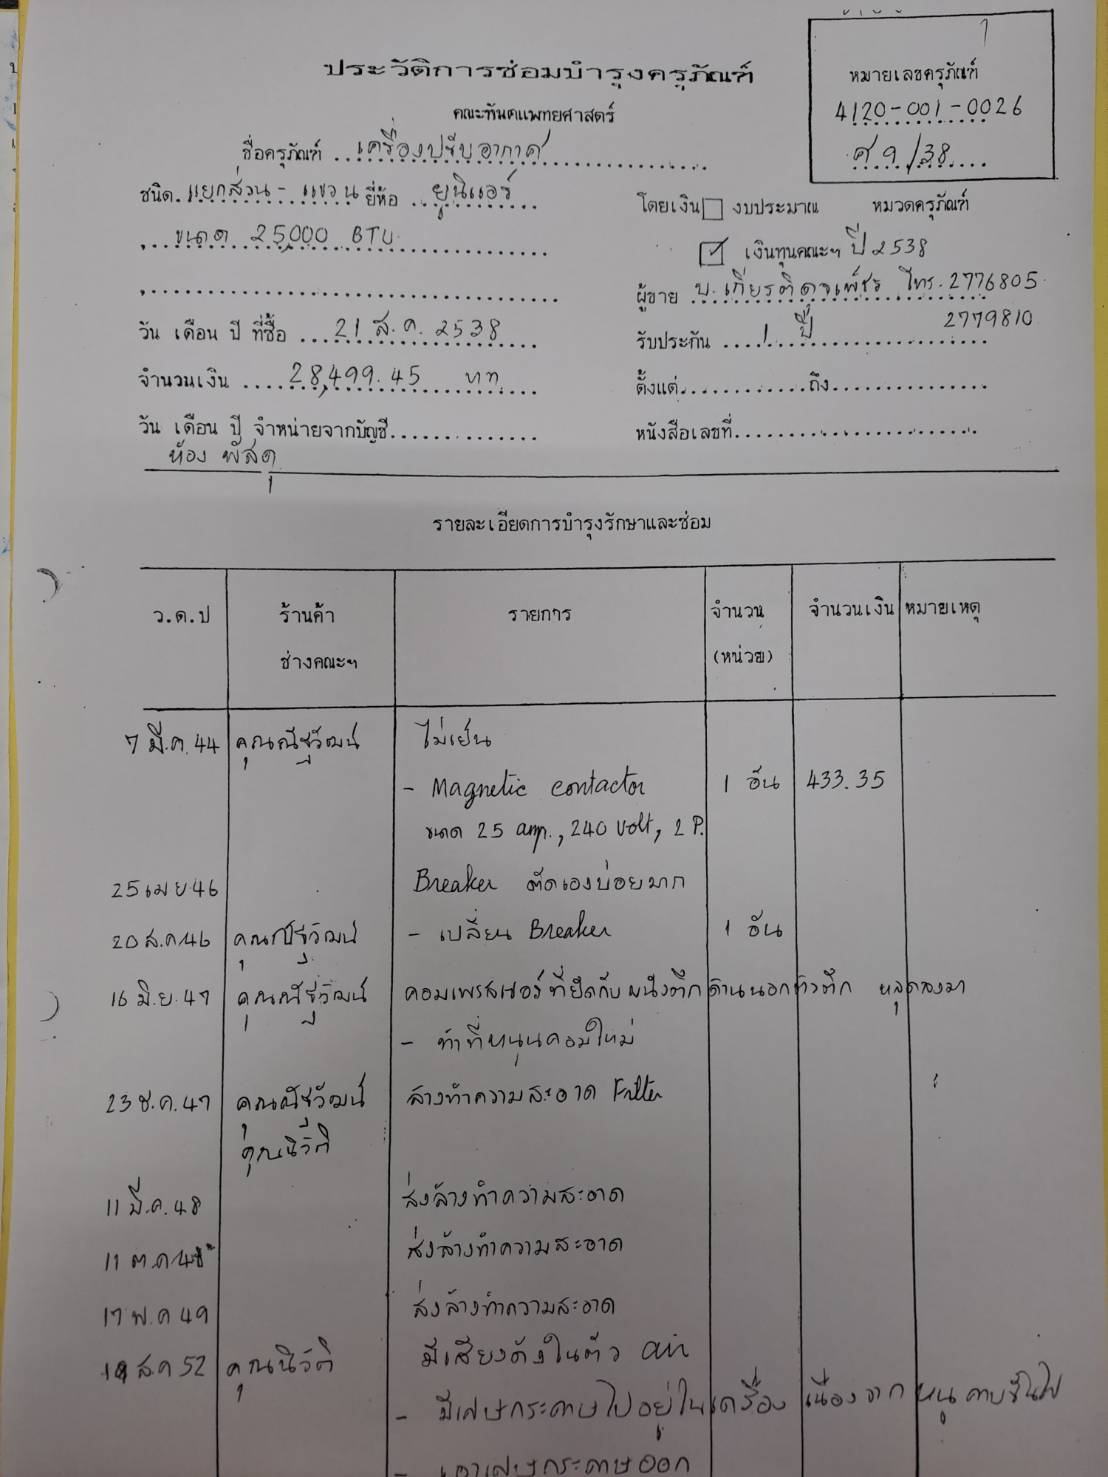 ประวัติการซ่อมบำรุงครุภัณฑ์
คณะทันตแพทยศาสตร์
หมายเลขครุภัณฑ์
4120-001-0026
ศ 9/38
ชื่อครุภัณฑ์ เครื่องปรับอากาศ
ชนิด แยกส่วน - แขวน ยี่ห้อ ยูนิแอร์
โดยเงิน งบประมาณ หมวดครุภัณฑ์
ขนาด 25,000 BTU
เงินทุนคณะฯ ปี 2538
ผู้ขาย บ. โทร. 2776805
2779810
วัน เดือน ปี ที่ซื้อ 21 ส.ค. 2538
รับประกัน 1 ปี
จำนวนเงิน 28,499.45 บาท
ตั้งแต่ ถึง
วัน เดือน ปี จำหน่ายจากบัญชี
หนังสือเลขที่
ห้อง พัสดุ
รายละเอียดการบำรุงรักษาและซ่อม
ว.ด.ป ร้านค้า รายการ จำนวน จำนวนเงิน หมายเหตุ
ช่างคณะฯ (หน่วย)
7 มี.ค. 44 คุณณัฐวัฒน์ ไม่เย็น
- Magnetic contactor 1 อัน 433.35
ขนาด 25 amp., 240 volt, 2 P.
25 เมย 46 Breaker ตัดเองบ่อยมาก
20 ส.ค 46 คุณณัฐวัฒน์ - เปลี่ยน Breaker 1 อัน
16 มิ.ย. 47 คุณณัฐวัฒน์ คอมเพรสเซอร์ที่ยึดกับผนังตึกด้านนอกตัวตึก หลุดลงมา
- ทำที่หนุนคอมใหม่
23 ธ.ค. 47 คุณณัฐวัฒน์ ล้างทำความสะอาด Filter
คุณนิวัติ
11 มี.ค. 48 ส่งล้างทำความสะอาด
11 ต.ค 48 ส่งล้างทำความสะอาด
17 พ.ค 49 ส่งล้างทำความสะอาด
ส.ค 52 คุณนิวัติ มีเสียงดังในตัว air
- มีเศษกระดาษไปอยู่ในเครื่อง เนื่องจาก หนูคาบขึ้นไป
- เอาเศษกระดาษออก